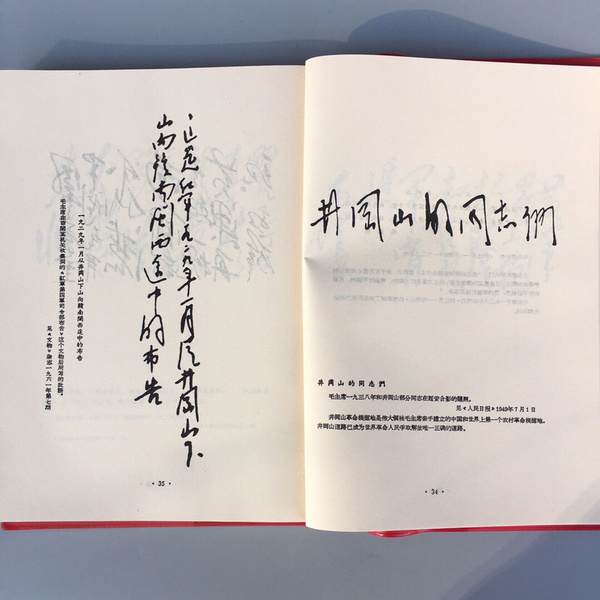 井岡山的同志們
井岡山的同志們
毛主席一九三八年和井岡山部分同志在延安合影的題照。
见《人民日报》1949年7月1日
井岡山革命根据地是伟大領袖毛主席亲手建立的中国和世界上第一个农村革命根据地。
井岡山道路已成为世界革命人民爭取解放唯一正确的道路。
·34·
这是红军一九二九年一月从井冈山下
山向赣南闽西途中的布告
一九二九年一月从井岡山下山向贛南閩西途中的布告
毛主席在审閱某机关收集到的《紅軍第四軍司令部布告》这个文物后所写的批語。
见《文物》杂志一九六一年第七期
·35·